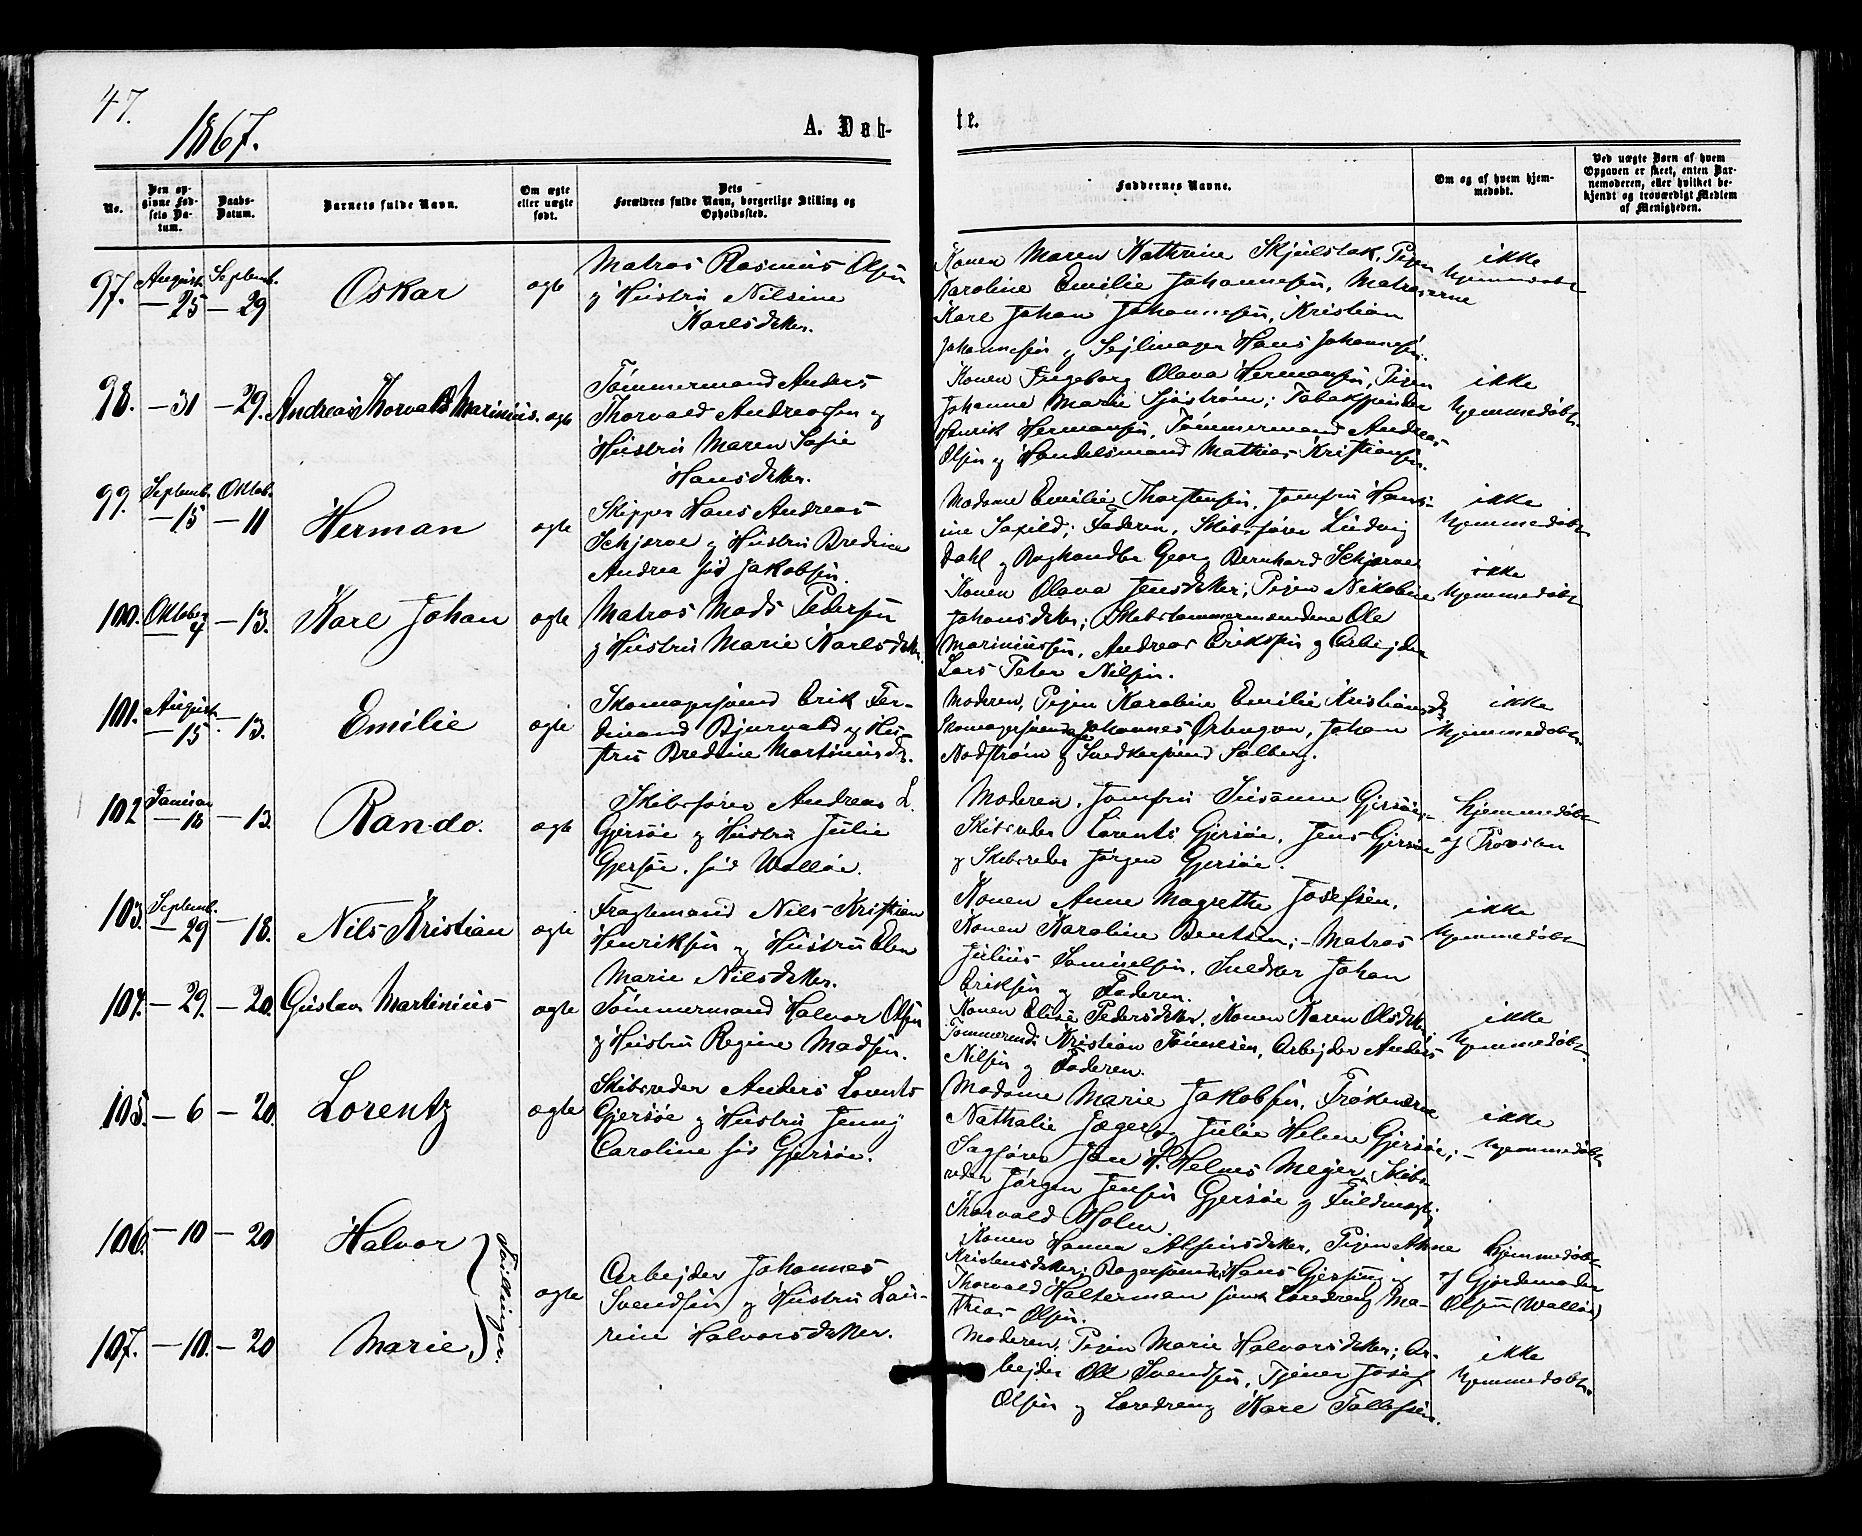 47.
1867.
A. Døb-
te.
No.
Den op-
givne Fød-
sels Da-
tum.
Daabs-
Datum.
Barnets fulde Navn.
Om ægte
eller uægte
født.
Dets
Forældres fulde Navn, borgerlige Stilling og
Opholdssted.
Faddernes Navne.
Om og af hvem hjem-
medøbt.
Ved uægte Børn af hvem
Opgaven er skeet, enten Bar-
nemoderen, eller hvilket be-
kjendt og troværdigt Medlem
af Menigheden.
97.
August
— 25
Septemb.
— 29
Oskar
ægte
Matros Rasmus Olsen
og Hustru Nilsine
Karlsdtter.
Konen Maren Kathrine Skjulstak, Pigen
Karoline Emilie Johannesen, Matroserne
Karl Johan Johannesen, Kristian
Johannesen og Sejlmager Hans Johannesen.
ikke
hjemmedøbt
98.
— 31
— 29.
Andreas Thorvald Marinius.
ægte
Tømmermand Anders
Thorvald Andreassen og
Hustru Maren Sofie
Hansdtter.
Konen Ingeborg Olava Hermansen, Pigen
Johanne Marie Sjøstrøm; Tobakspinder
Henrik Hermansen, Tømmermand Andreas
Olsen og Handelsmand Mathias Kristiansen.
ikke
hjemmedøbt.
99.
Septemb.
— 15
Oktob.
— 11
Herman
ægte
Skipper Hans Andreas
Schjerve og Hustru Bredine
Andrea fød Jakobsen.
Madame Emilie Thorstensen, Jomfru Hans-
ine Saxild; Faderen, Skibsfører Ludvig
Dahl og Boghandler Georg Bernhard Schjerve
ikke
hjemmedøbt
100.
Oktober
— 4
— 13.
Karl Johan
ægte
Matros Mads Pedersen
og Hustru Marie Karlsdtter.
Konen Olava Jensdtter; Pigen Nikoline
Johansdtter; Skibstømmermændene Ole
Mariniussen, Andreas Eriksen og Arbejder
Lars Peter Nilsen.
ikke
hjemmedøbt
101.
August
— 15
— 13.
Emilie
ægte
Skomagersvend Erik Fer-
dinand Bjurvald og Hu-
stru Bredine Martiniusdr.
Moderen, Pigen Karoline Emilie Kristiansdr
Skomagersvendene Johannes Ørbugen, Johan
Nodstrøm og Snedkersvend Solberg.
ikke
hjemmedøbt
102
Januar
— 18
— 13.
Rando.
ægte
Skibsfører Andreas L.
Gjersøe og Hustru Julie
Gjersøe, fød Walløe.
Moderen, Jomfru Susanne Gjersøe;
Skibsreder Lorents Gjersøe, Jens Gjersøe
og Skibsreder Jørgen Gjersøe.
hjemmedøbt
af Provsten
103.
Septemb.
— 29
— 18.
Nils Kristian
ægte
Fragtemand Nils Kristian
Henriksen og Hustru Elen
Marie Nilsdtter.
Konen Anne Magrethe Josefsen,
Konen Karoline Bentsen; — Matros
Julius Samuelsen, Snedker Johan
Eriksen og Faderen.
ikke
hjemmedøbt
104.
— 29.
— 20.
Gustav Martinius
ægte
Tømmermand Halvor Olsen
og Hustru Regine Madsen.
Konen Elise Pedersdtter, Konen Karen Olsdtter
Tømmermd: Kristian Tønnesen, Arbejder Anders
Nilsen og Faderen.
ikke
hjemmedøbt.
105
— 6
— 20.
Lorentz
ægte
Skibsreder Anders Lorents
Gjersøe og Hustru Jenny
Caroline fød Gjersøe.
Madame Marie Jakobsen, Frøknerne
Nathalie Jæger og Julie Helene Gjersøe; —
Sagfører Jan H. Helnes Mejer, Skibs-
reder Jørgen Jensen Gjersøe og Fuldmægtig
Thorvald Holm
ikke
hjemmedøbt
106.
— 10
— 20
Halvor
Tvillinger.
ægte
Arbejder Johannes
Svendsen og Hustru Lau-
rine Halvorsdtter.
Konen Hanna Alfinsdtter, Pigen Anne
Kristensdtter; Bagersvend Hans Gjessing og
Thorvald Halterman samt Læredreng Ma-
thias Olsen.
hjemmedøbt
af Gjordemoder
Olsen (Walløe)
107.
— 10.
— 20
Marie
Moderen, Pigen Marie Halvorsdtter; Ar-
bejder Ole Svendsen, Tjener Josef
Olsen og Læredreng Karl Tollefsen.
ikke
hjemmedøbt.